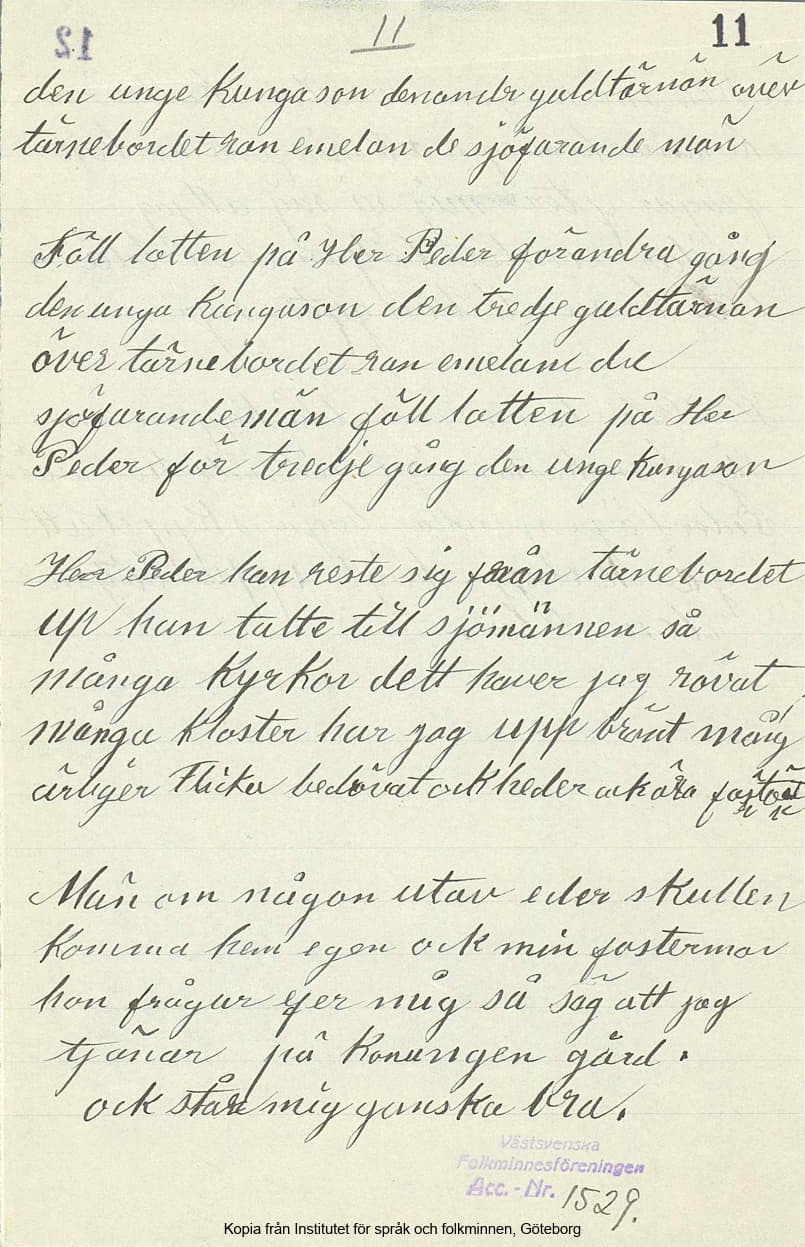 11 11
den unge Kungason denandr guldtärnän över
tärnebordet ran emelan de sjöfarande män
Föll lotten på Her Peder förandra gång
den unga Kungason den tredje guldtärnan
över tärnebordet ran emelam de
sjöfarandemän föll lotten på Her
Peder för tredje gång den unge Kungason
Herr Peder han reste sig från tärnebordet
up han talte till sjömännen så
många Kyrkor dett haver jag rövat
många kloster har jag upp bränt mång
ärliger Flicka bedrövat ock heder ock ära
Män om någon utav eder skullen
komma hem egen ock min fostermor
hon frågar efer mig så säg att jag
tjänar på Konungen gård.
ock står mig ganska bra.
Västsvenska
Folkminnesföreningen
Acc. - Nr. 1529.
Kopia från Institutet för språk och folkminnen, Göteborg